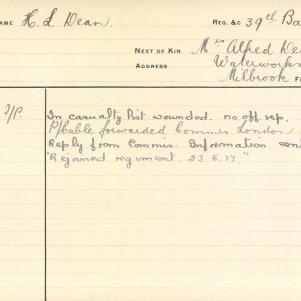 NAME H. L. Dean. REG. &c 39th Ba
NEXT OF KIN Mrs Alfred De
ADDRESS Waterworks
Milbrook
I/P. In casualty list wounded. no off. rep.
P/Cable forwarded Commis London
Reply from Commis. Information cont
"Rejoined regiment. 23.6.17."